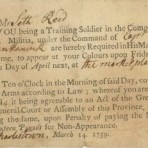 Mr Seth Reed
YOU being a Training Soldier in the Company
Militia, under the Command of Capt
are hereby Required in His M
to appear at your Colours upon Friday
Day of April next, at the marketplace
Ten o'Clock in the Morning of said Day, co
Arms according to Law; whereof you are
it being agreeable to an Act of the Great
Court or Assembly of this Province,
the same, upon Penalty of paying the
Pounds for Non-Appearance.
Charlestown, March 14. 1759.